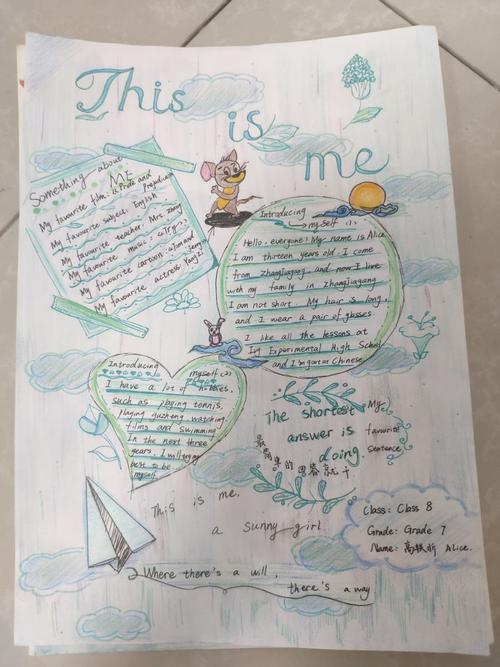 This
is
me
Something about
ME
My favourite film: 《Pride and
Prejudice》
My favourite subject: English
My favourite teacher: Mrs.
My favourite music: 《Try》
My favourite cartoon: 《Tom and
Jerry》
My favourite actress: Yang Zi
Introducing
myself (1)
Hello, everyone! My name is Alice.
I am thirteen years old. I come
from zhangjiagang and now I live
with my family in zhangjiagang
I am not short. My hair is long,
and I wear a pair of glasses.
I like all the lessons at
Experimental High School
and I'm good at Chinese
Introducing
myself (2)
I have a lot of hobbies,
such as playing tennis,
playing guzheng, watching
films and swimming.
In the next three
years, I will try my
best to be
myself.
The shortest
answer is
doing.
My
favourite
Sentence
最简单的回答就是干
This is me,
a sunny girl
Class: Class 8
Grade: Grade 7
Name: 高 Alice.
Where there's a will,
there's a way